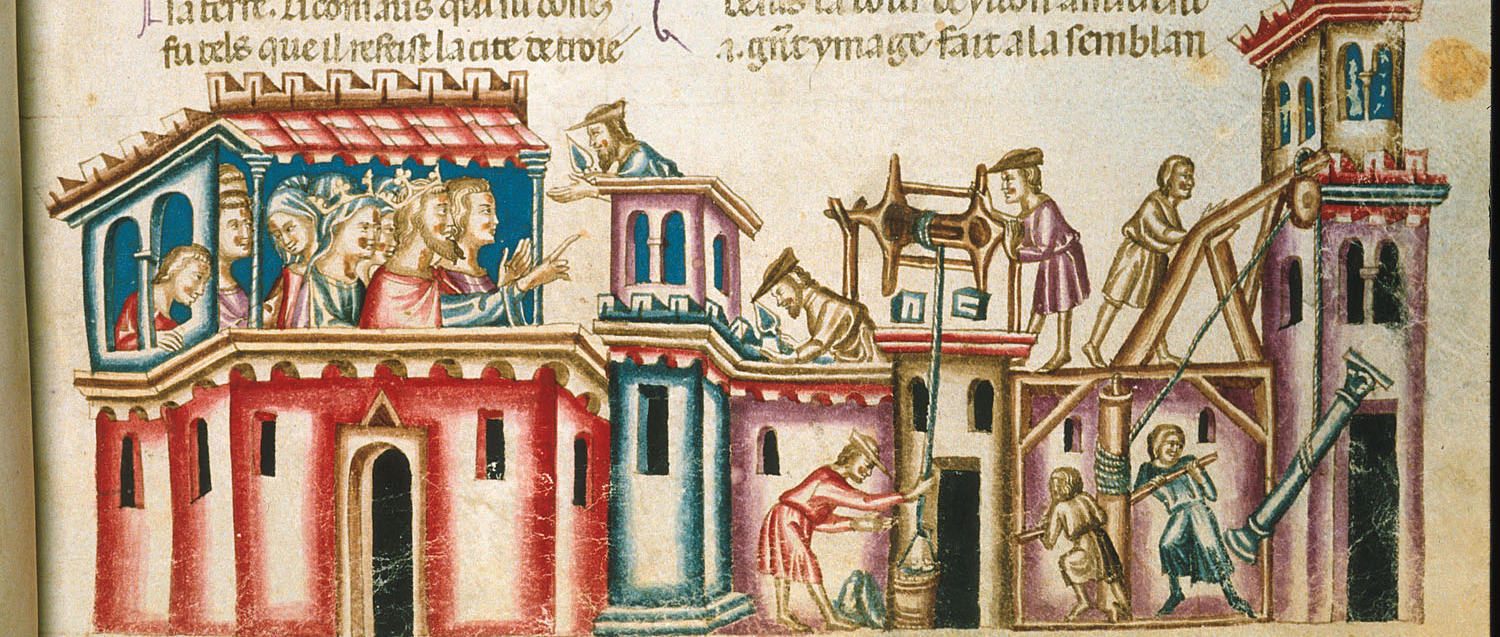 la terre. Li comans qui fu donés
fu tels que il refeist la cite de troie
desus la tour deylion
.i. gñt ymage fait a la semblan